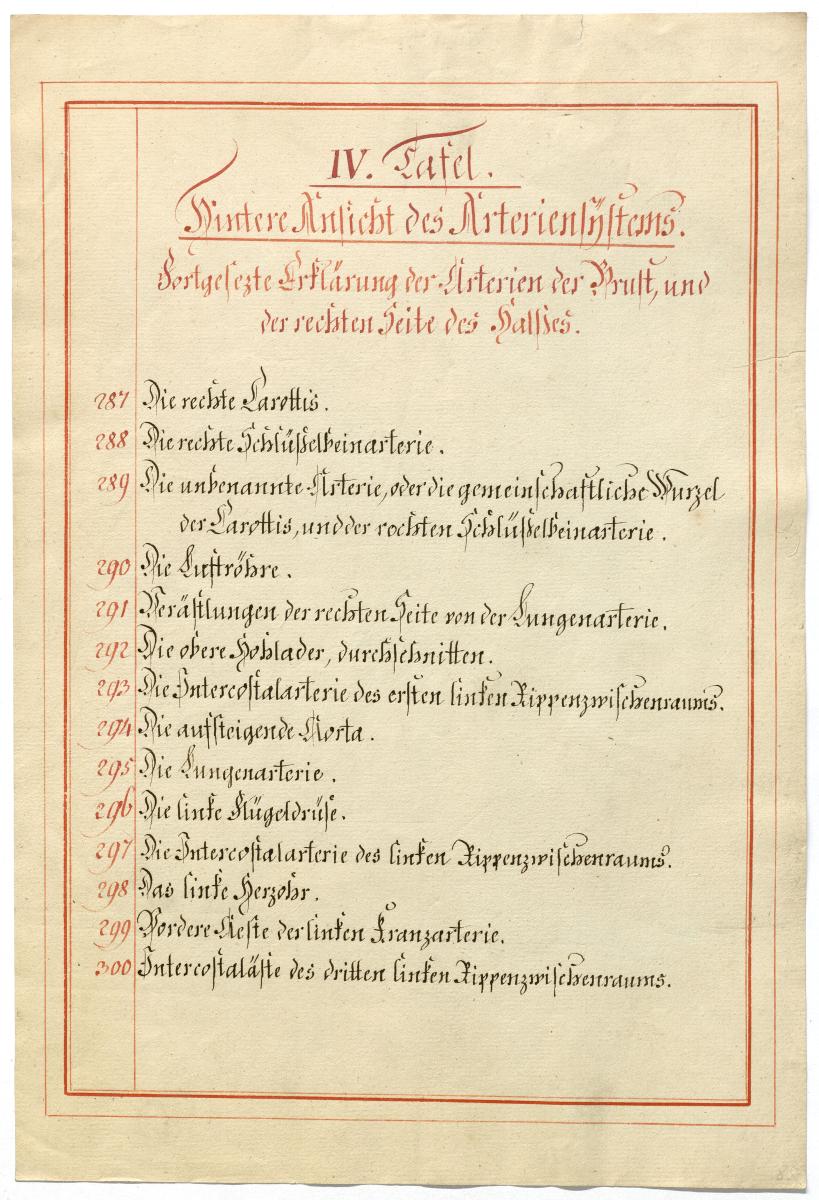 IV. Tafel.
Hintere Ansicht des Arteriensÿstems.
Fortgesezte Erklärung der Arterien der Brust, und
der rechten Seite des Halses.
287 Die rechte Carottis.
288 Die rechte Schlüßelbeinarterie.
289 Die unbenannte Arterie, oder die gemeinschaftliche Wurzel
der Carottis, und der rechten Schlüßelbeinarterie.
290 Die Luftröhre.
291 Verästlungen der rechten Seite von der Lungenarterie.
292 Die obere Hohlader, durchschnitten.
293 Die Intercostalarterie des ersten linken Rippenzwischenraums.
294 Die aufsteigende Aorta.
295 Die Lungenarterie.
296 Die linke Flügeldrüse.
297 Die Intercostalarterie des linken Rippenzwischenraums.
298 Das linke Herzohr.
299 Vordere Aeste der linken Kranzarterie.
300 Intercostaläste des dritten linken Rippenzwischenraums.